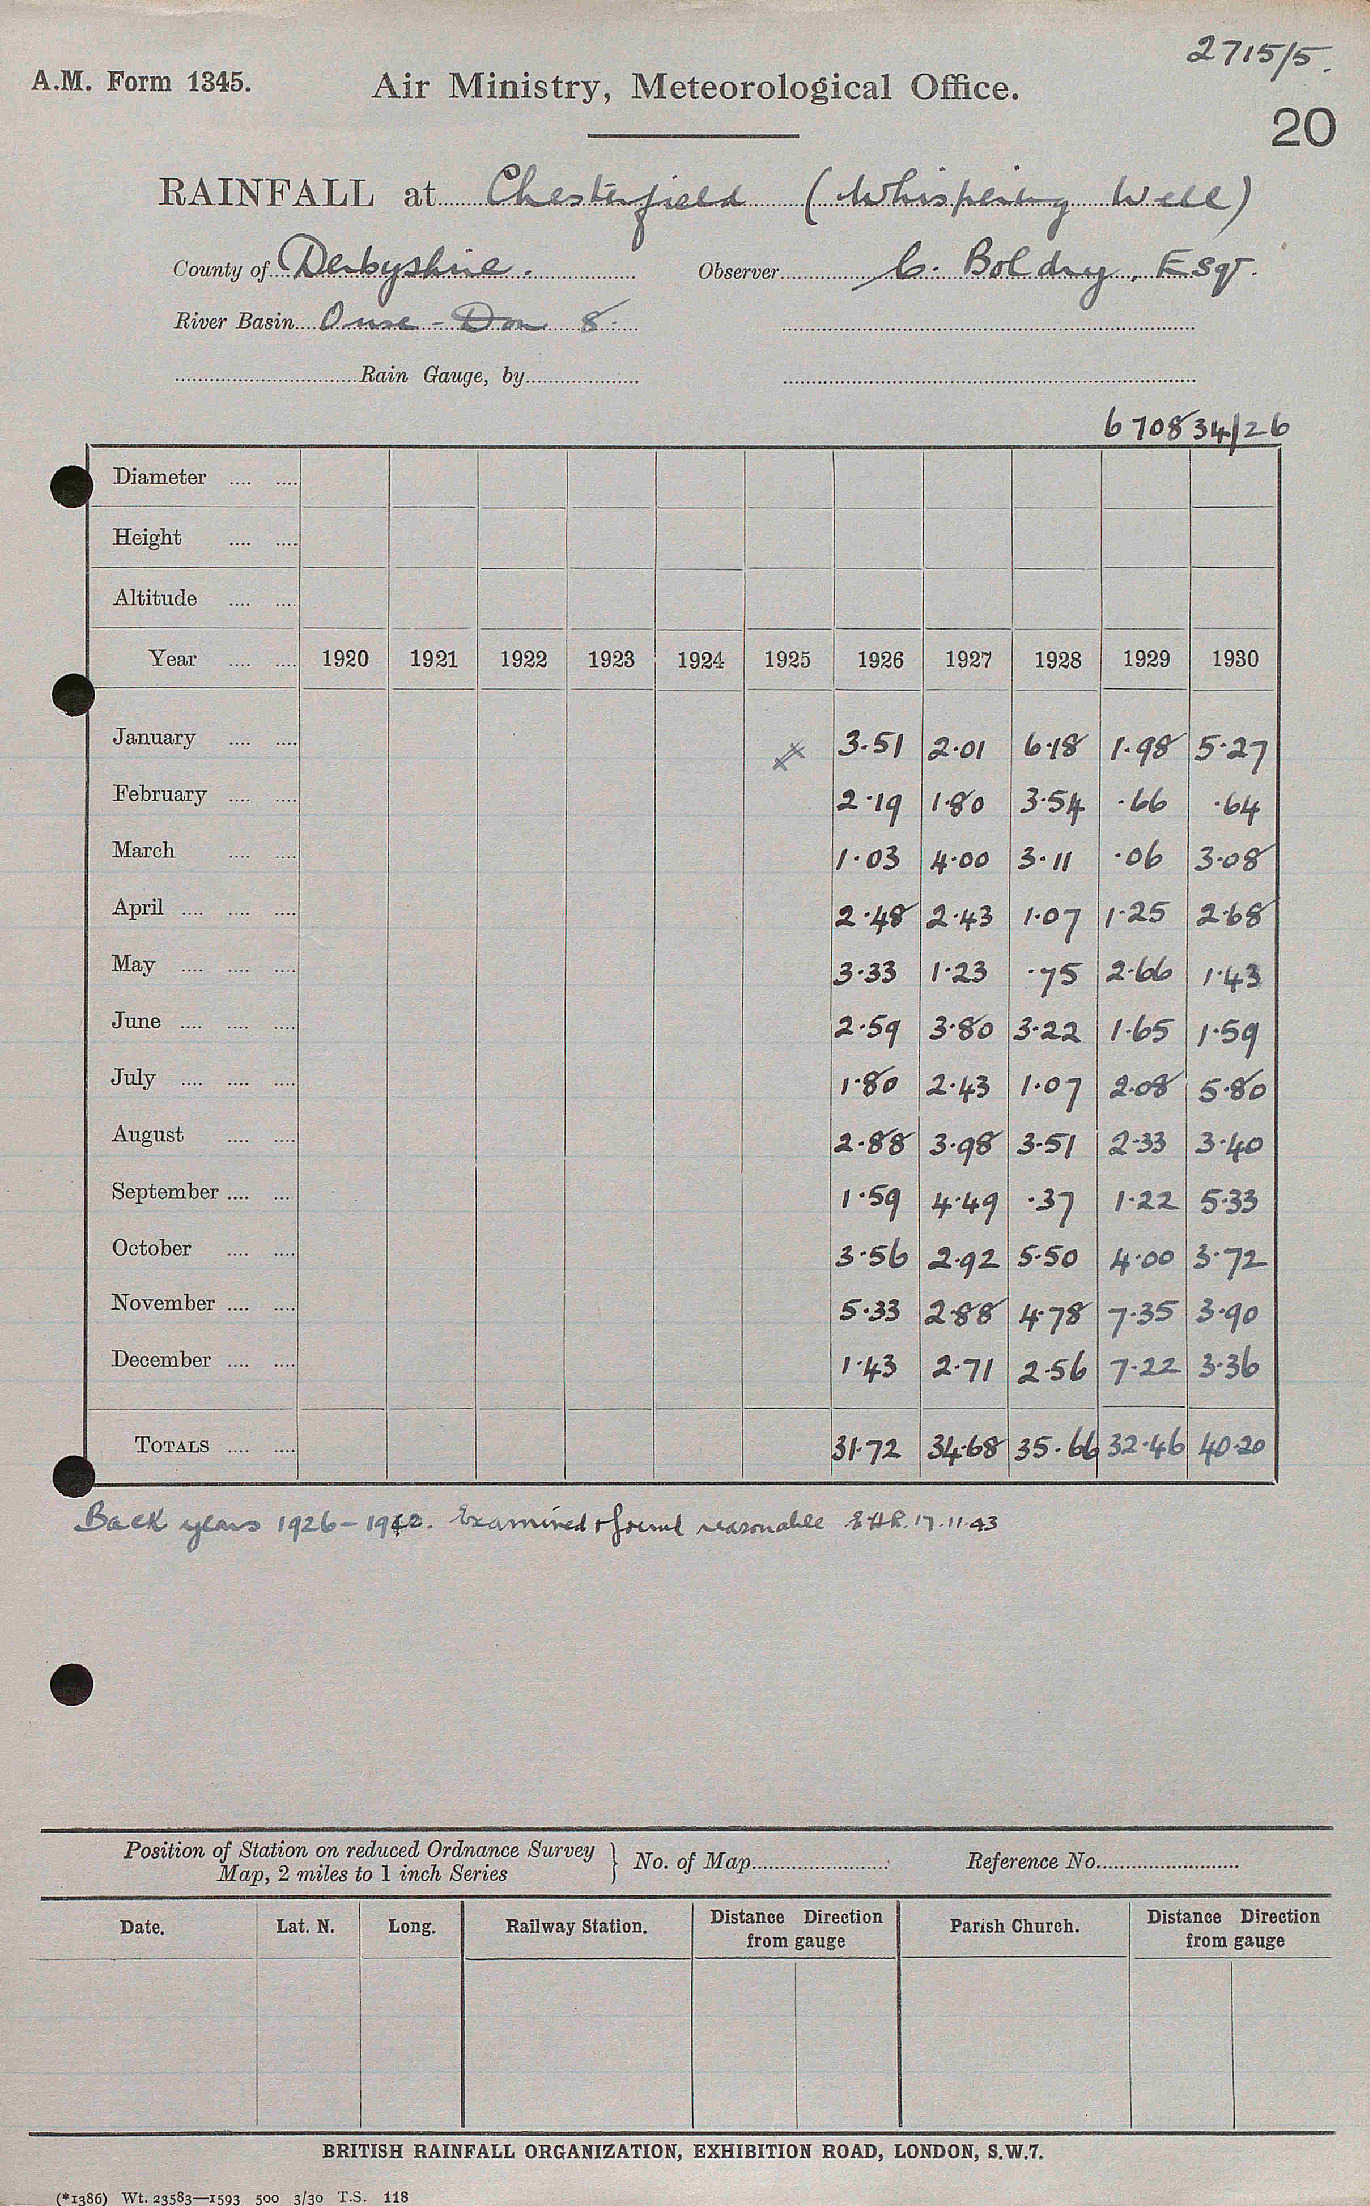 2715/5.
A.M. Form 1345. Air Ministry, Meteorological Office.
20
RAINFALL at Chesterfield (Whispering Well)
County of Derbyshire. Observer C. Boldry, Esqr.
River Basin Ouse - Don 8.
Rain Gauge, by
670834/26
Diameter
Height
Altitude
Year 1920 1921 1922 1923 1924 1925 1926 1927 1928 1929 1930
January 3.51 2.01 6.18 1.98 5.27
February 2.19 1.80 3.54 .66 .64
March 1.03 4.00 3.11 .06 3.08
April 2.48 2.43 1.07 1.25 2.68
May 3.33 1.23 .75 2.66 1.43
June 2.59 3.80 3.22 1.65 1.59
July 1.80 2.43 1.07 2.08 5.80
August 2.88 3.98 3.51 2.33 3.40
September 1.59 4.49 .37 1.22 5.33
October 3.56 2.92 5.50 4.00 3.72
November 5.33 2.88 4.78 7.35 3.90
December 1.43 2.71 2.56 7.22 3.36
TOTALS 31.72 34.68 35.66 32.46 40.20
Back years 1926-1940. Examined & found reasonable 17.11.43
Position of Station on reduced Ordnance Survey
Map, 2 miles to 1 inch Series } No. of Map Reference No.
Date. Lat. N. Long. Railway Station. Distance Direction from gauge Parish Church. Distance Direction from gauge
BRITISH RAINFALL ORGANIZATION, EXHIBITION ROAD, LONDON, S.W.7.
(*1386) Wt. 23583—1593 500 3/30 T.S. 118